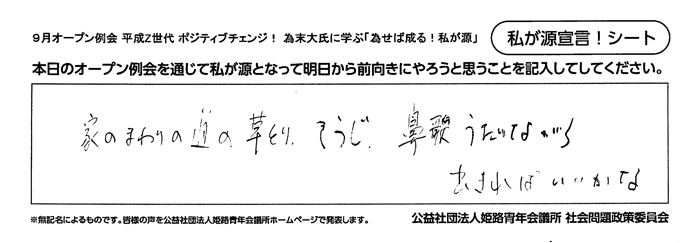 9月オープン例会 平成Z世代 ポジティブチェンジ! 為末大氏に学ぶ「為せば成る!私が源」
私が源宣言!シート
本日のオープン例会を通じて私が源となって明日から前向きにやろうと思うことを記入してしてください。
家のまわりの道の草とり、そうじ、鼻歌うたいながら
できればいいかな
※無記名によるものです。皆様の声を公益社団法人姫路青年会議所ホームページで発表します。
公益社団法人姫路青年会議所 社会問題政策委員会